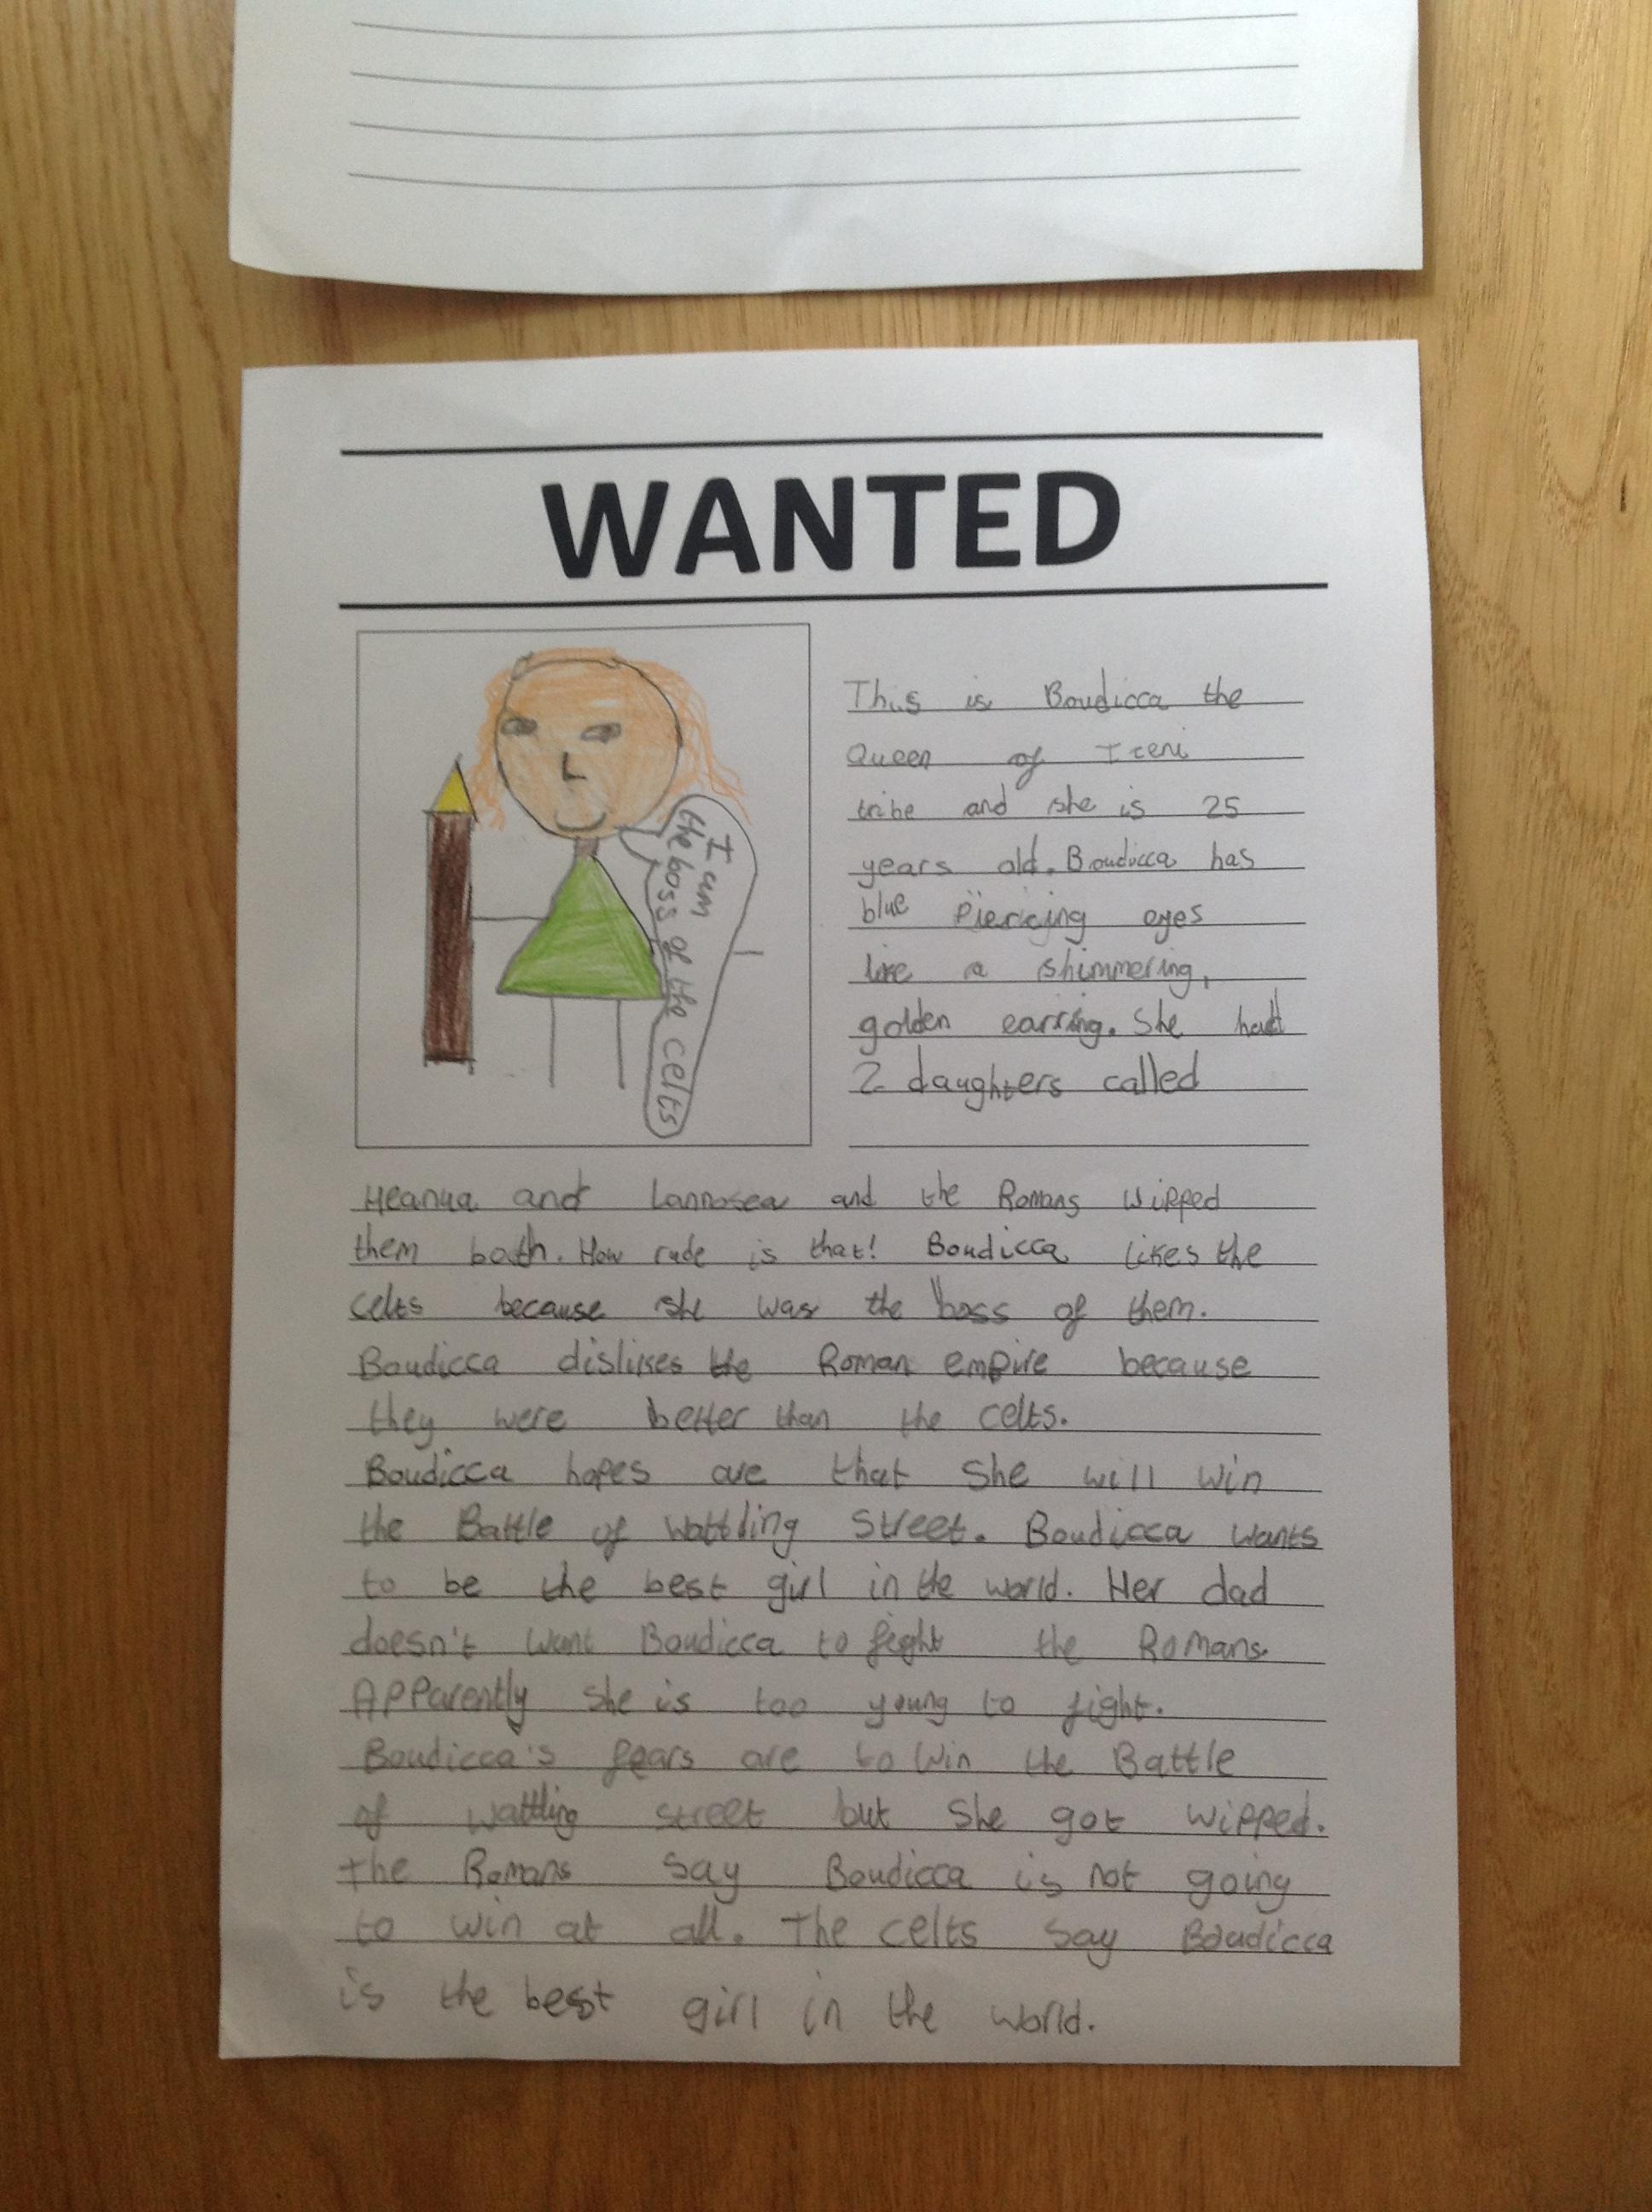 WANTED
I am
the boss of the celts
This is Boudicca the
Queen of Iceni
tribe and she is 25
years old. Boudicca has
blue Piericing eyes
like a shimmering,
golden earring. She had
2 daughters called
Heanua and Lannosea and the Romans wipped
them both. How rude is that! Boudicca likes the
celts because she was the boss of them.
Boudicca dislikes the Roman empire because
they were better than the celts.
Boudicca hopes are that She will win
the Battle of Wattling Street. Boudicca wants
to be the best girl in the world. Her dad
doesn't want Boudicca to fight the Romans.
Apparently she is too young to fight.
Boudicca's fears are to win the Battle
of wattling street but She got wipped.
The Romans say Boudicca is not going
to win at all. The celts say Boudicca
is the best girl in the world.